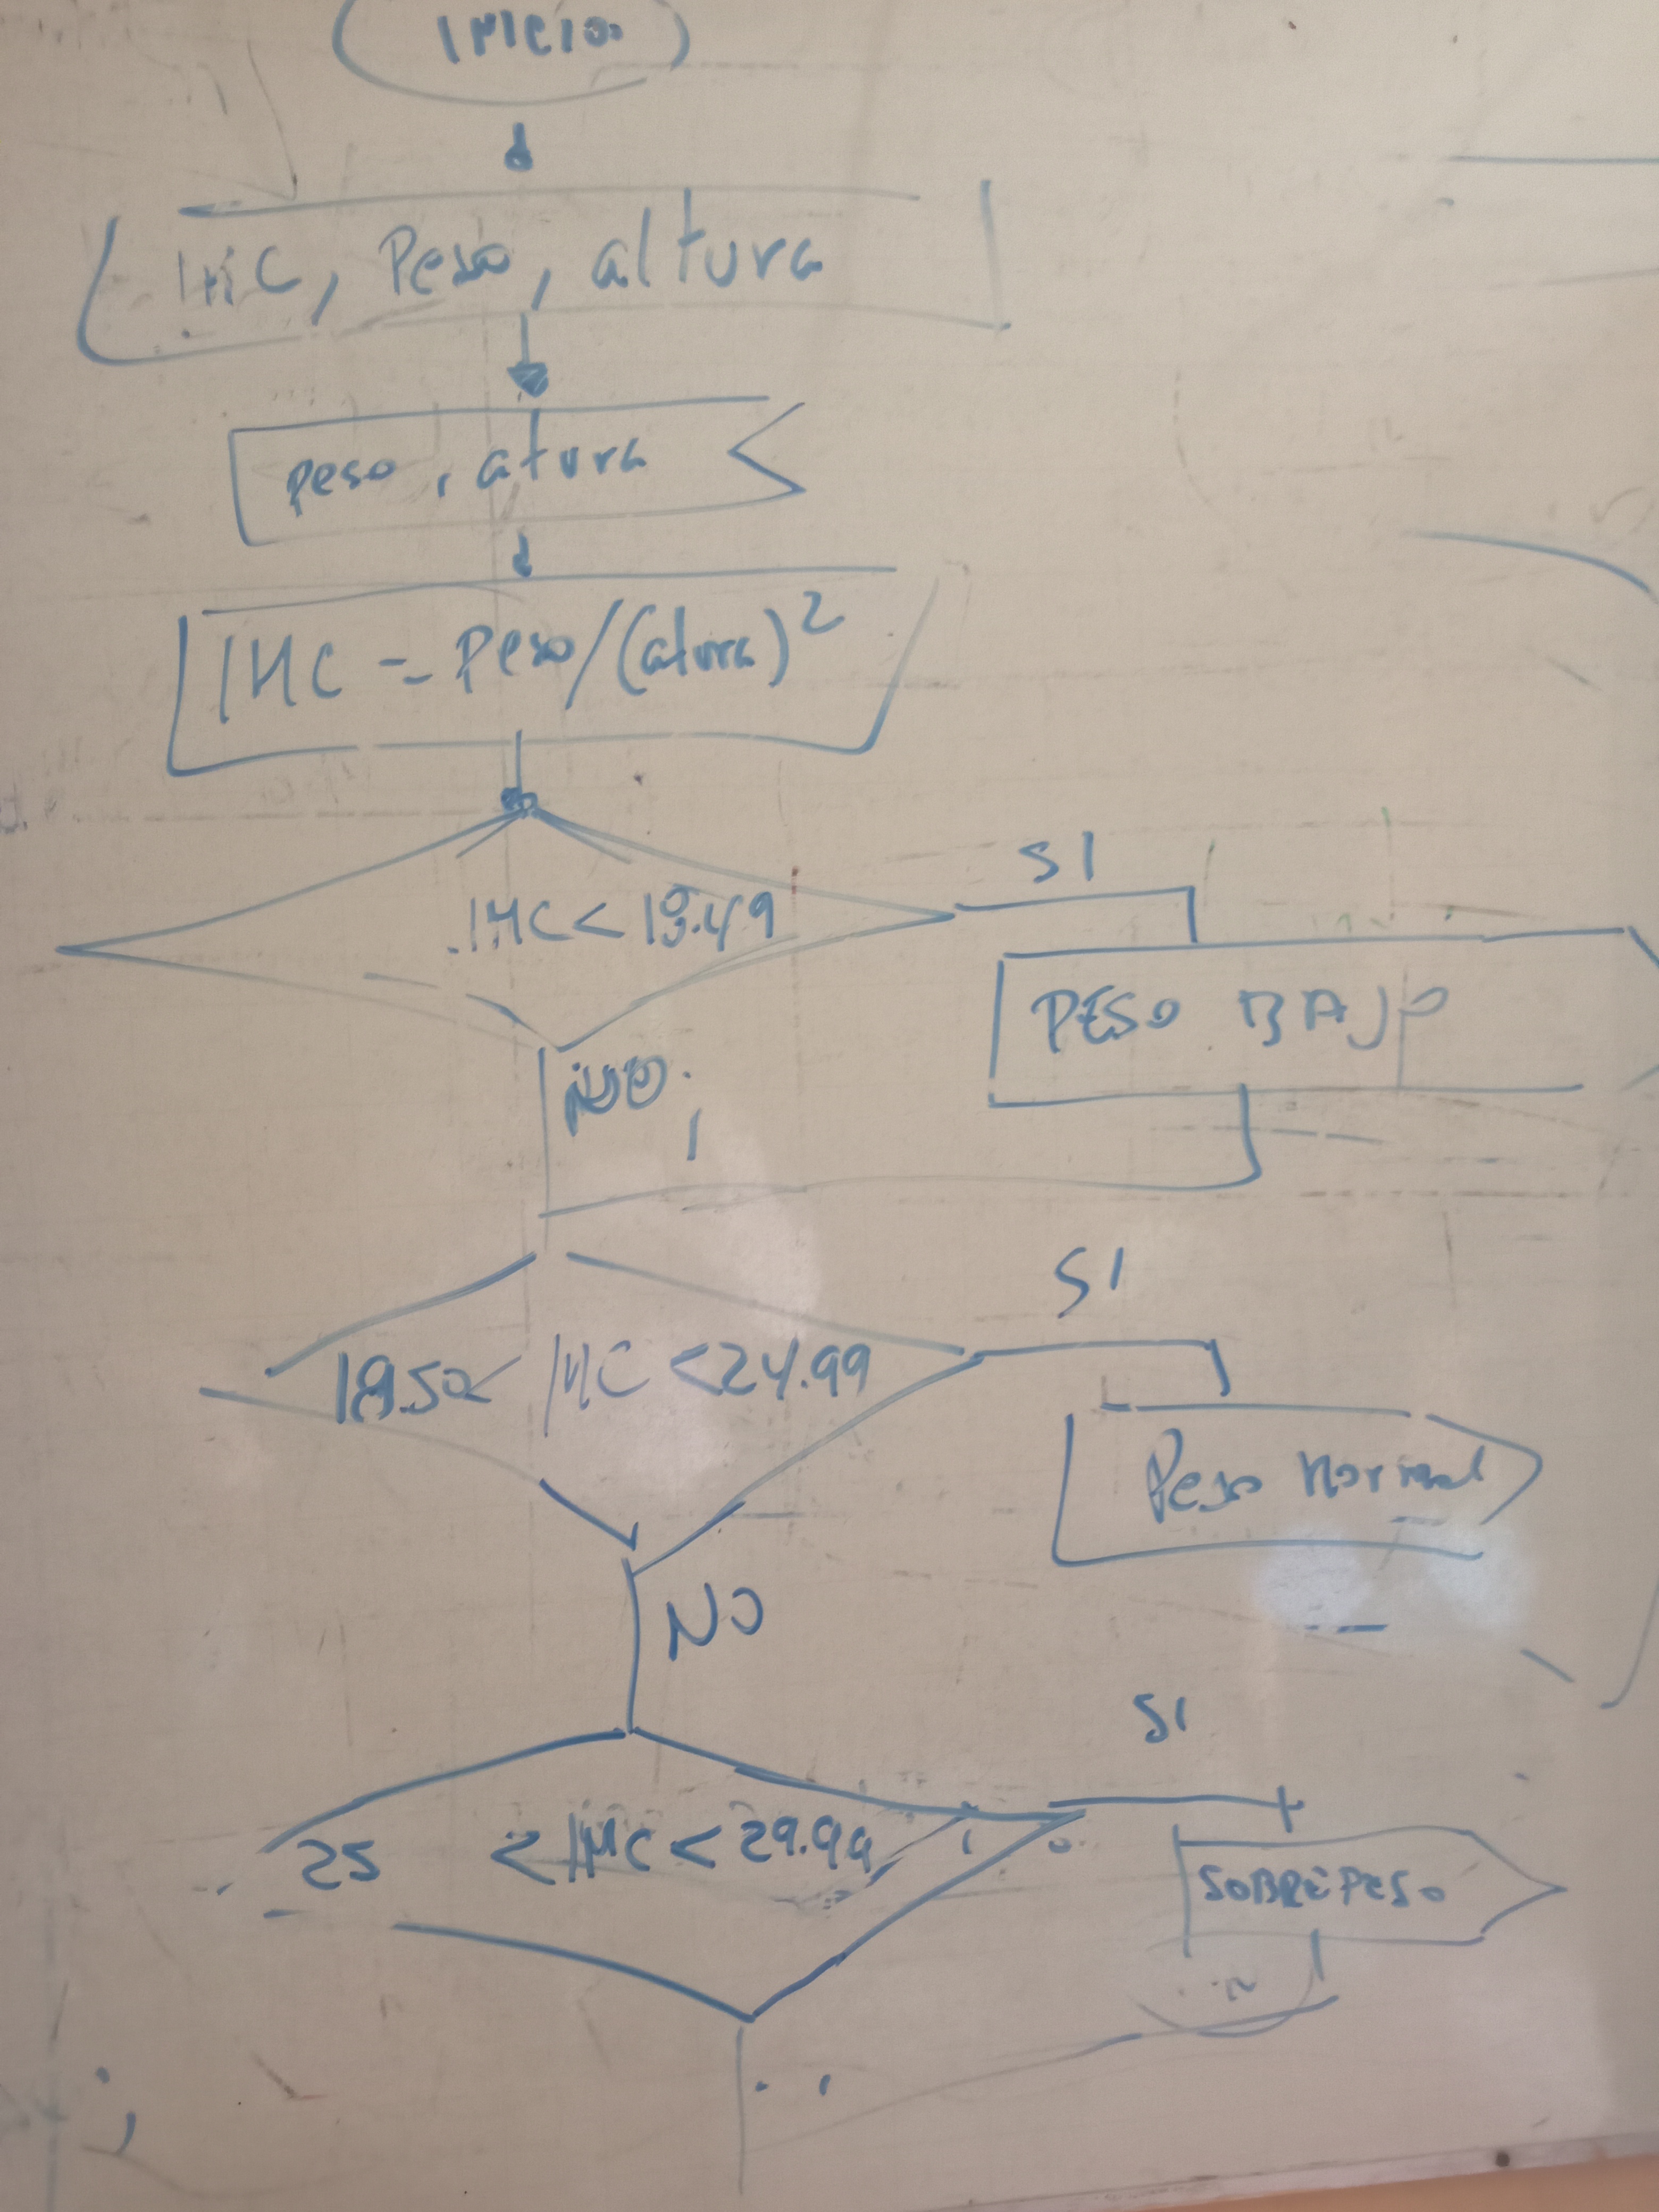 INICIO
IMC, Peso, altura
peso, atura
IMC = Peso/(atura)²
SI
IMC < 18.49
PESO BAJO
NO
SI
18.50 < IMC < 24.99
Peso normal
NO
SI
25 < IMC < 29.99
SOBREPESO